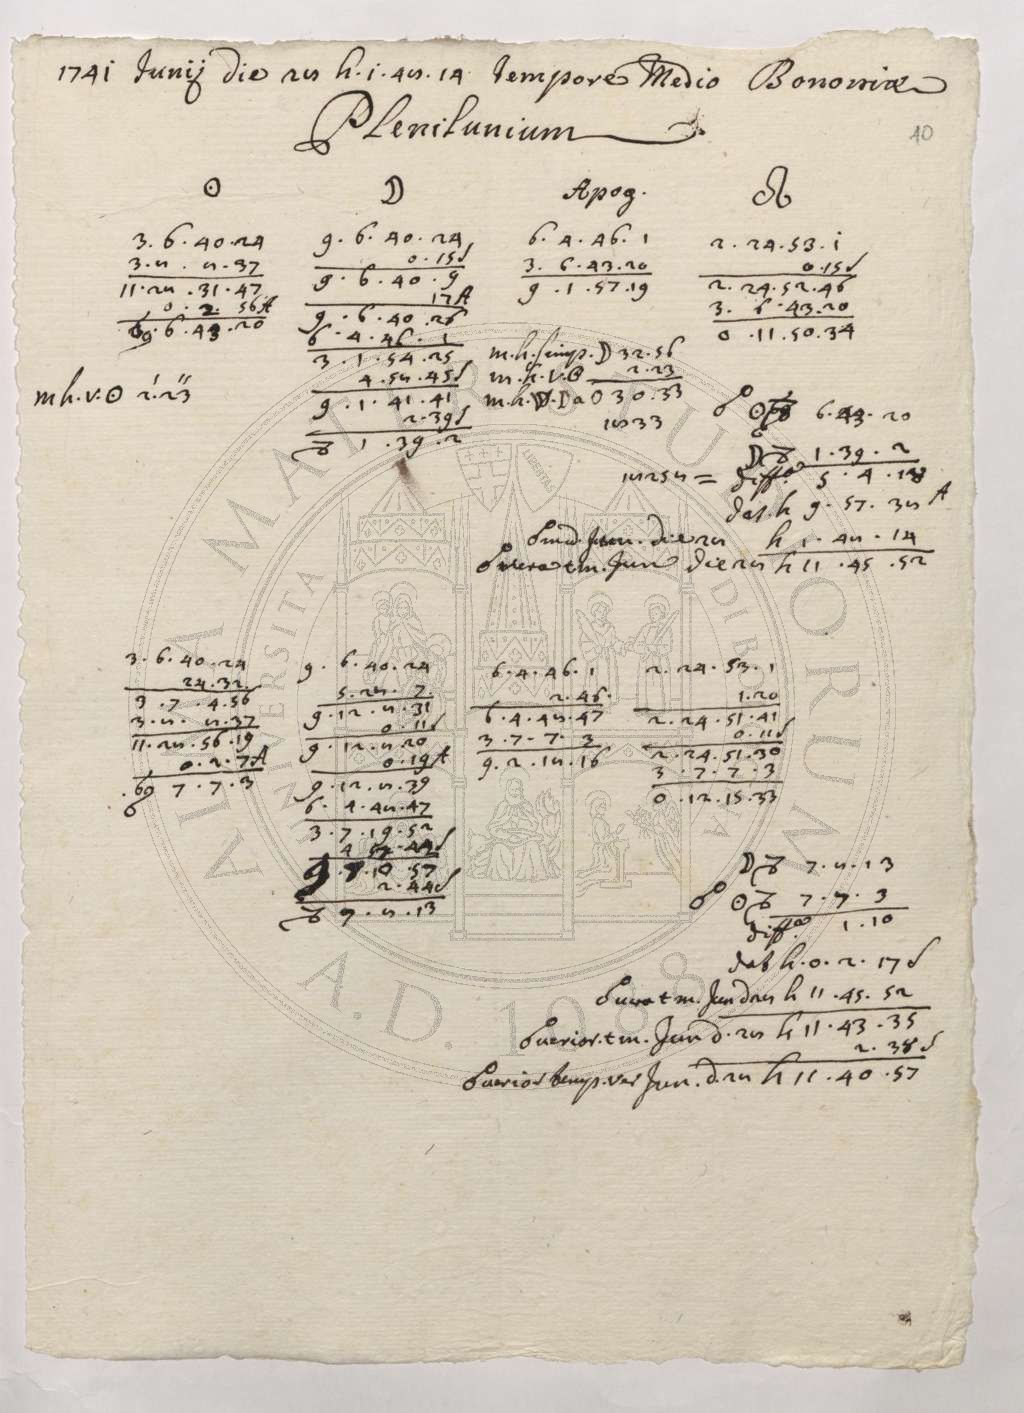 1741 Junij die 28 h.1.48.14 tempore Medio Bononiæ
Plenilunium
10
☉
3.6.40.24
3.8.8.37
11.28.31.47
0.2.56A
♋ 6.43.20
m h.v.☉ 2'.23"
☽
9.6.40.24
0.15S
9.6.40.9
17A
9.6.40.26
6.4.46.1
3.1.54.25
4.58.45S
9.1.41.41
2.39S
♑ 1.39.2
Apog.
6.4.46.1
3.6.43.20
9.1.57.19
m.h.simp.☽ 32.56
m.h.v.☉ 2.23
m.h.v.☽ a ☉ 30.33
1833
☊
2.24.53.1
0.15S
2.24.52.46
3.6.43.20
0.11.50.34
☍ ☉♋ 6.43.20
☽♑ 1.39.2
18258 = diff.a 5.4.18
dat h 9.57.38 A
☍ med. Jun. die 28 h 1.48.14
☍ vera t.m. Jun die 28 h 11.45.52
3.6.40.24
24.32
3.7.4.56
3.8.8.37
11.28.56.19
0.2.7A
♋ 7.7.3
9.6.40.24
5.28.7
9.12.8.31
0.11S
9.12.8.20
0.19A
9.12.8.39
6.4.48.47
3.7.19.52
4.57.42S
9.7.10.57
2.44S
♑ 7.8.13
6.4.46.1
2.46.
6.4.48.47
3.7.7.3
9.2.18.16
2.24.53.1
1.20
2.24.51.41
0.11S
2.24.51.30
3.7.7.3
0.12.15.33
☽♑ 7.8.13
☍ ☉♋ 7.7.3
diff.a 1.10
dat h.0.2.17S
☍ vera t m. Jun d 28 h 11.45.52
☍ verior. t m. Jun d.28 h 11.43.35
2.38S
☍ verior temp.ver Jun. d.28 h 11.40.57
ALMA MATER STUDIORUM
UNIVERSITA
A.D. 1088
LIBERTAS